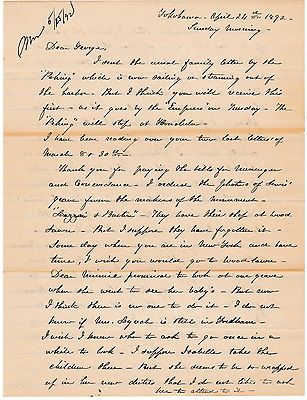 5/15/92
Yokohama - April 24th 1892.
Sunday Morning -
Dear George,
I sent the usual family letter by the
"Peking" which is now sailing or steaming out of
the harbor. But I think you will receive this
first - as it goes by the "Empress" on Tuesday - The
"Peking" will stop at Honolulu -
I have been reading over your two last letters of
March 8 & 30
Thank you for paying the bills for
and Concordance - I ordered the photos of
grave from the makers of the monument -
They have their shop at Wood
lawn - But I suppose they have forgotten it -
Some day when you are in New York and have
time, I wish you would go to Wood-lawn -
Dear Minnie promised to look at our grave
when she went to see her baby's - But now
I think there is no one to do it - I do not
know if Mrs. is still in
I wish I knew who to ask to go once in a
while to look - I suppose Isabella takes the
children there - But she seems to be so wrapped
up in her new duties that I do not like to ask
her to attend to it -